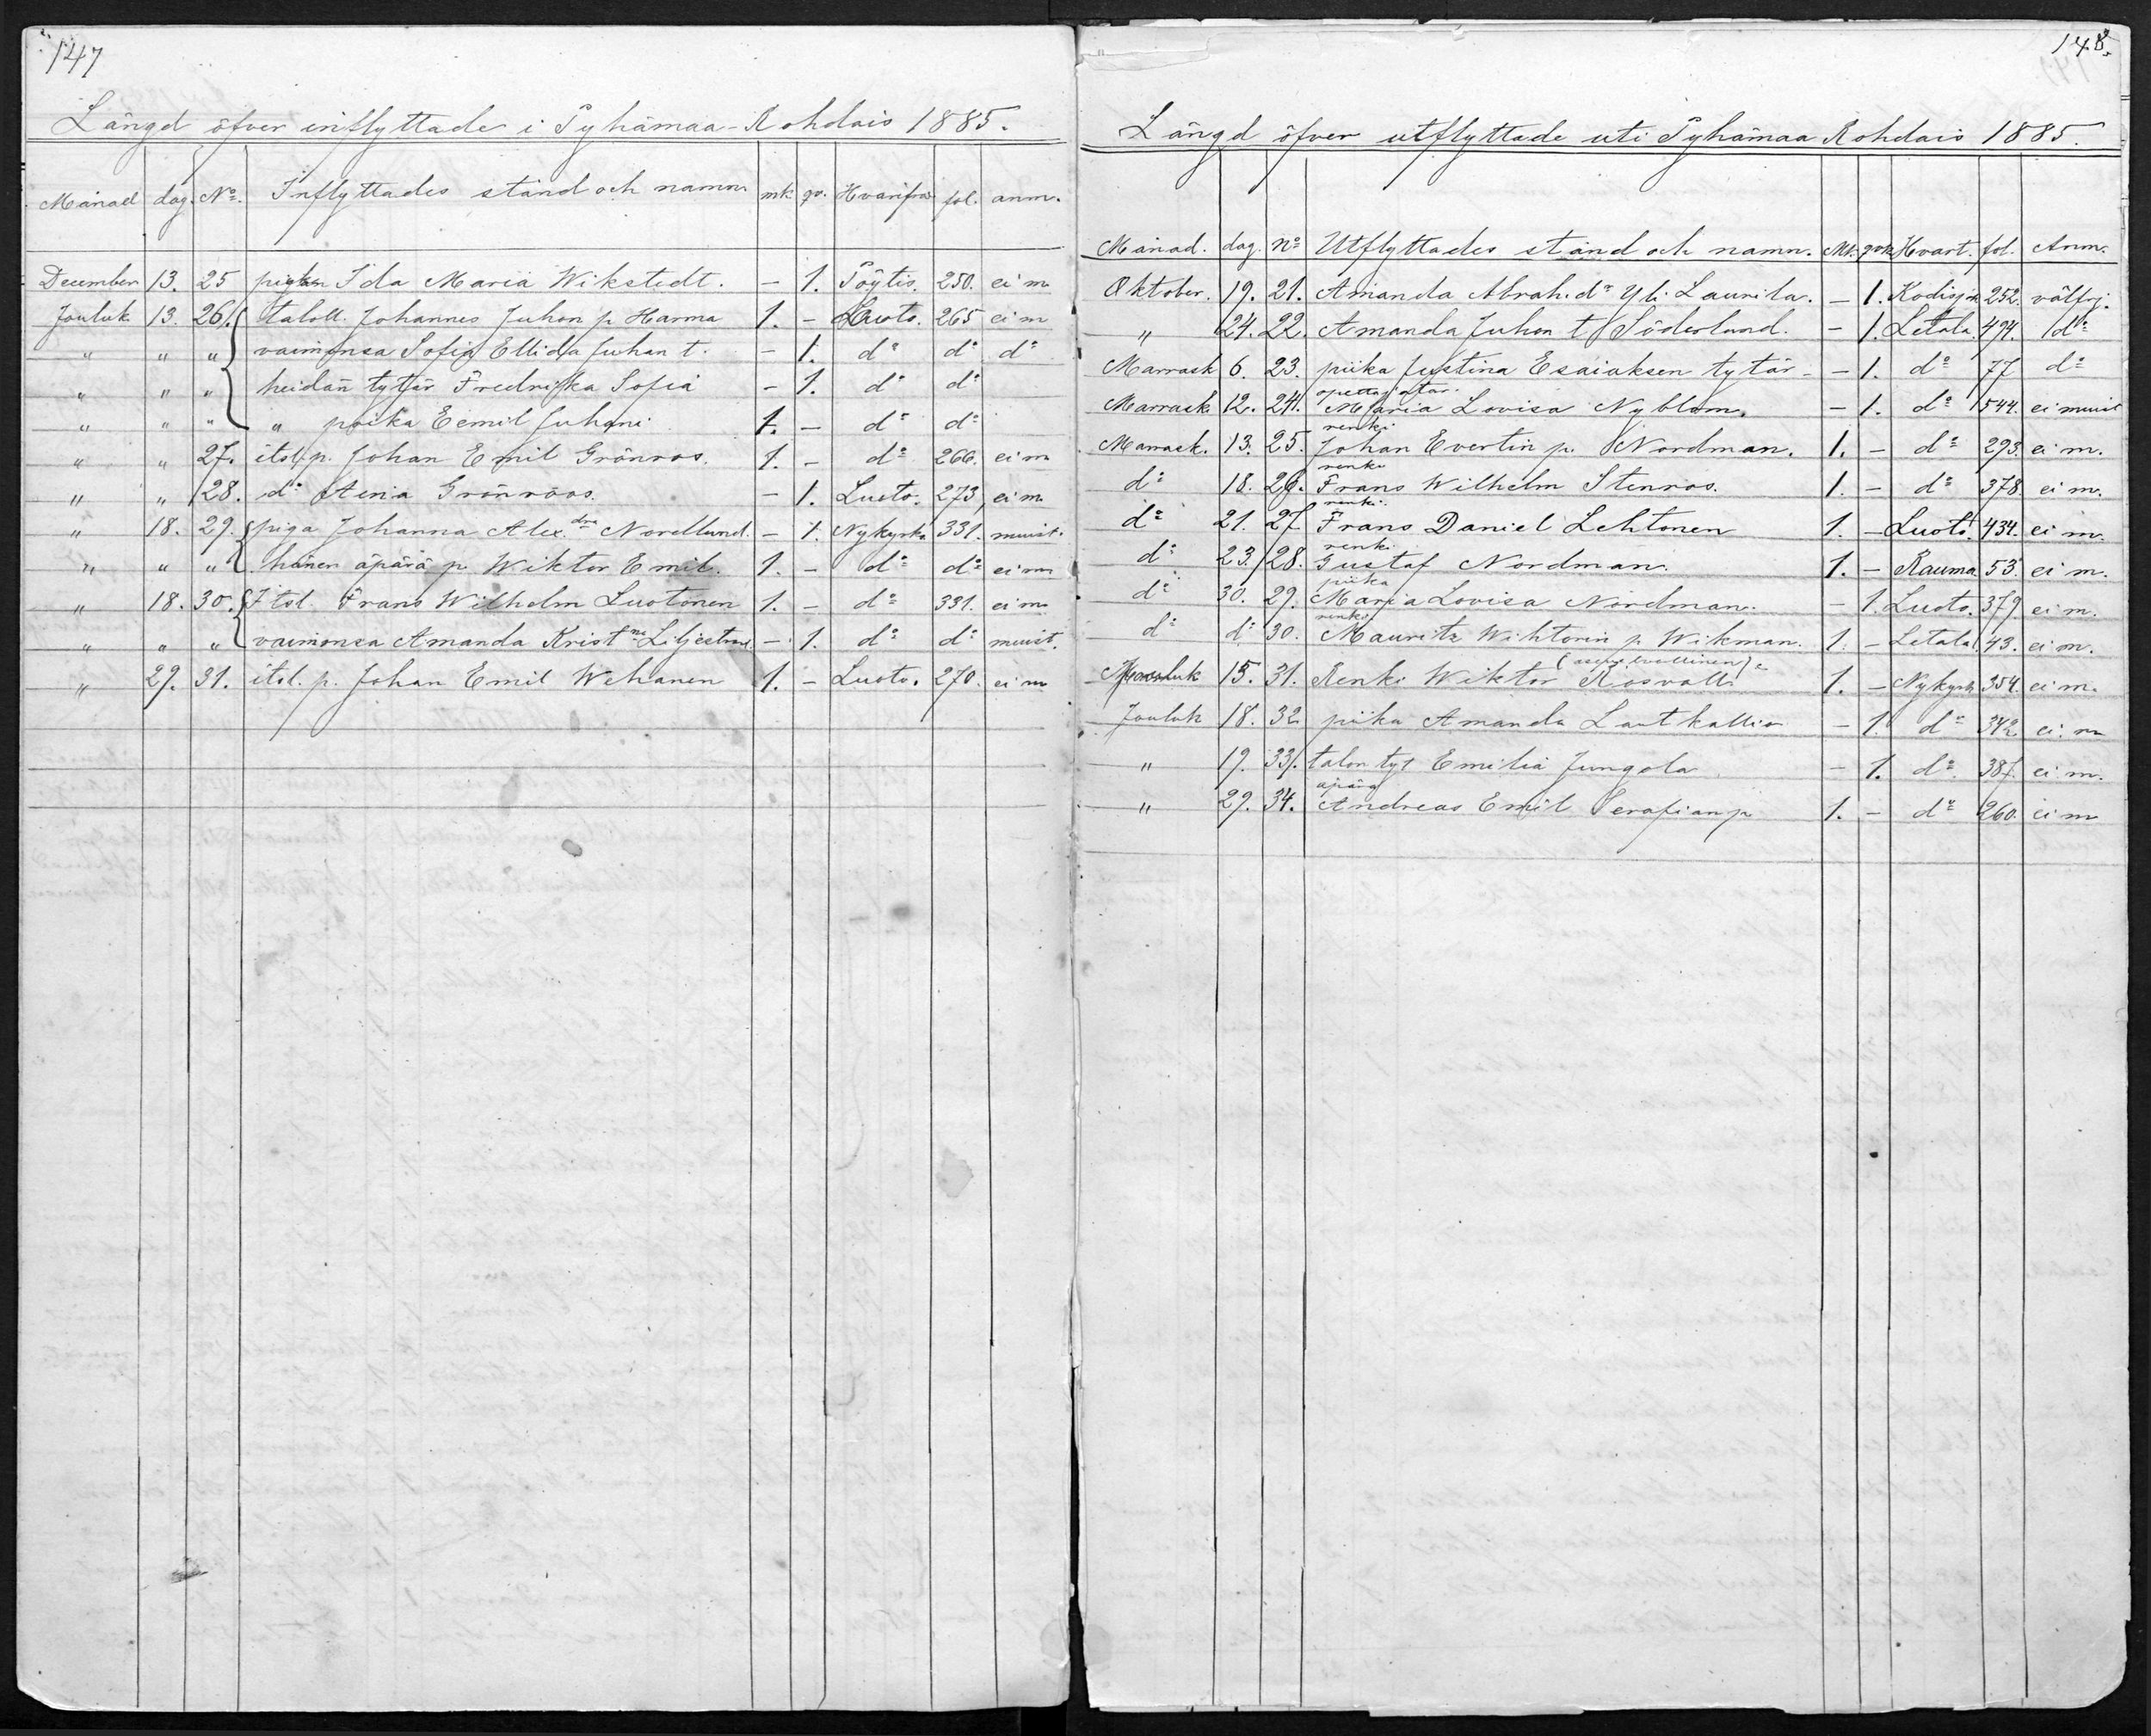 147
Längd öfver inflyttade i Pyhämaa-Rohdais 1885.
Månad dag. No. Inflyttades stånd och namn mk. qv. Hvarifrån fol. anm.
December 13. 25 Ida Maria Wikstedt. — 1. Pöytis. 250. ei m
Jouluk 13. 26. taloll. Johannes Juhon p Harma 1. — Luoto. 265 ei m
" " " vaimonsa Sofia Ellida Juhan t. — 1. do do do
" " " heidän tytär Fredriika Sofia — 1. do do
" " " " poika Eemil Juhani 1. — do do
" " 27. itsl. p. Johan Emil Grönroos. 1. — do 266. ei m
" " 28. do Aina Grönröos. — 1. Luoto. 273, ei m.
" 18. 29. piga Johanna Alex.dra Nordlund. — 1. Nykyrko 331. muist.
" " " hänen äpärä p Wiktor Emil. 1. — do do ei m
" 18. 30. Itsl. Frans Wilhelm Luotonen 1. — do 331. ei m
" " " vaimonsa Amanda Krist.na Liljestrand — 1. do do muist.
" 29. 31. itsl. p. Johan Emil Wehanen 1. — Luoto. 270. ei m
148.
Längd öfver utflyttade uti Pyhämaa Rohdais 1885.
Månad. dag. no Utflyttades stånd och namn. Mk. qvk Hvart. fol. Anm.
Oktober. 19. 21. Amanda Abrah. dr Yli Laurila. — 1. Kodisjok 252. välfrj.
" 24. 22. Amanda Juhon t Söderlund. — 1. Letala. 494. do
Marrask 6. 23. piika Justina Esaiaksen tytär — 1. do 77 do
opettajatar
Marrask. 12. 24. Maria Lovisa Nyblom. — 1. do 544. ei muist
renki
Marrask. 13. 25. Johan Evertin p. Nordman. 1. — do 293. ei m.
renki
do 18. 26. Frans Wilhelm Stenroos. 1. — do 378. ei m.
renki.
do 21. 27 Frans Daniel Lehtonen 1. — Luoto. 434. ei m.
renki
do 23. 28. Gustaf Nordman. 1. — Rauma 53. ei m.
piika
do 30. 29. Maria Lovisa Nordman. — 1. Luoto. 379. ei m.
renki
do do 30. Mauritz Wihtorin p Wikman. 1. — Letala. 43. ei m.
15. 31. Renki Wiktor Rosvall 1. — Nykyrk 354. ei m.
Jouluk 18. 32 piika Amanda Lautkallio — 1. do 342 ei m
" 19. 33. talon tyt Emilia Jungola — 1. do 387. ei m.
äpärä
" 29. 34. Andreas Emil Serafian p 1. — do 260. ei m